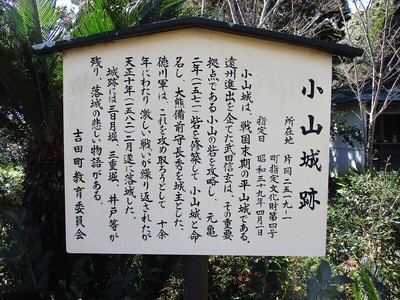 小山城跡
所在地　片岡二五一九ー一
町指定文化財第四号
指定日　昭和三十九年四月一日
小山城は、戦国末期の平山城である。
遠州進出を企てた武田信玄は、その重要
拠点である小山の砦を攻略し、元亀
二年（一五七一）砦を修築して小山城と命
名し、大熊備前守正秀を城主とした。
徳川軍は、これを攻め取ろうとして十余
年にわたり激しい戦いが繰り返されたが
天正十年（一五八二）二月遂に落城した。
城跡には三日月堀、三重堀、井戸等が
残り、落城の悲しい物語がある。
吉田町教育委員会